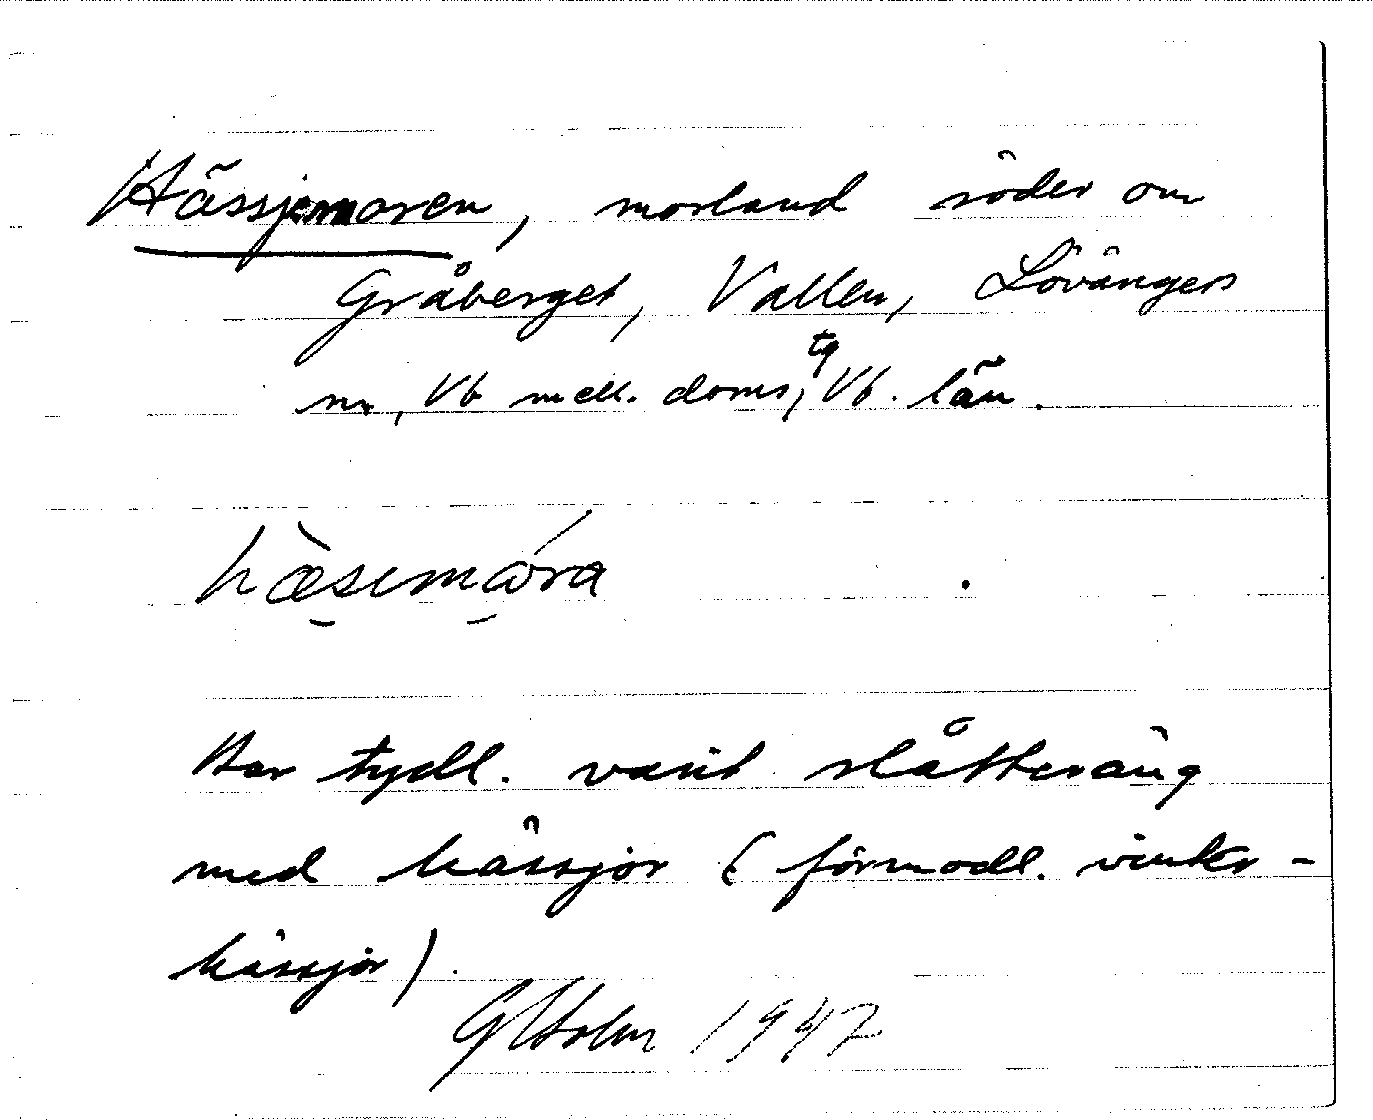 Hässjemoren, morland söder om
Gråberget, Vallen, Lövångers
sn, Vb mell. doms, tg Vb. län.
hæsemóra
Har tydl. varit slåtteräng
med hässjor (förmodl. vinter-
hässjor).
G Holm 1947